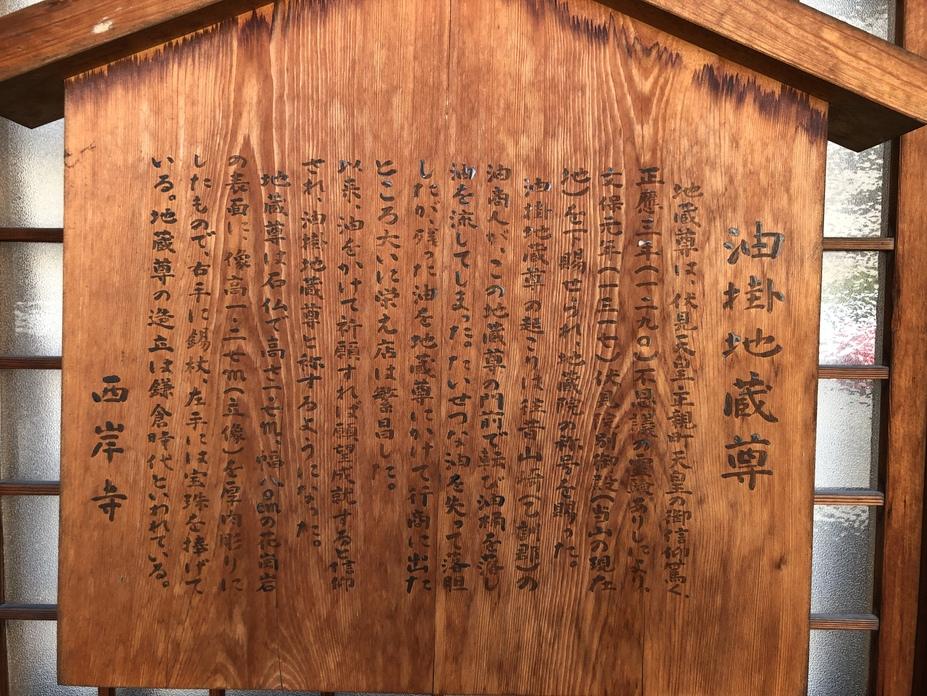 油掛地蔵尊
地蔵尊は、伏見天皇王親町天皇の御信仰篤く、
正應三年(一二九〇)不思議の霊験ありしにより、
文保元年(一三一七)伏見の別御殿(当山の現在
地)を下賜せられ、地蔵院の称号を賜った。
油掛地蔵尊の起こりは往昔山崎(乙訓郡)の
油商人が、この地蔵尊の門前で転び油桶を落し
油を流してしまった。たいせつな油を失って落胆
したが、残った油を地蔵尊にかけて行商に出た
ところ大いに栄え店は繁昌した。
以来、油をかけて祈願すれば願望成就すると信仰
され、油掛地蔵尊と称するようになった。
地蔵尊は石仏で高さ一・七m、幅八〇cmの花崗岩
の表面に、像高一・二七m(立像)を厚肉彫りに
したもので、右手に錫杖、左手には宝珠を捧げて
いる。地蔵尊の造立は鎌倉時代といわれている。
西岸寺